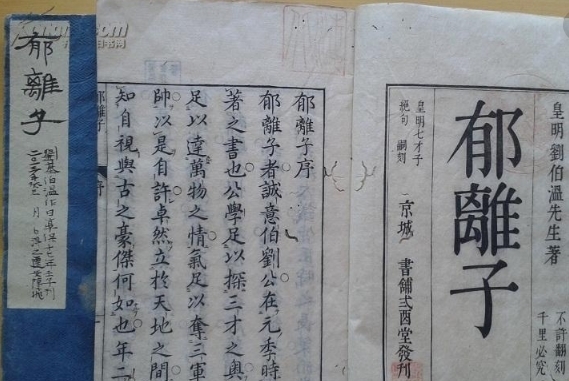 皇明劉伯溫先生著
郁離子
不許翻刻
千里必究
皇明七才子
絕句 嗣刻
京城 書舖弍酉堂發刊
郁離子序
郁離子者誠意伯劉公在元季時
著之書也公學足以探三才之奧
足以達萬物之情氣足以奪三軍
帥以是自許卓然立於天地之間
知自視與古之豪傑何如也年二
郁離子
序
郁離子
劉基伯溫作日享保十七年壬子刊